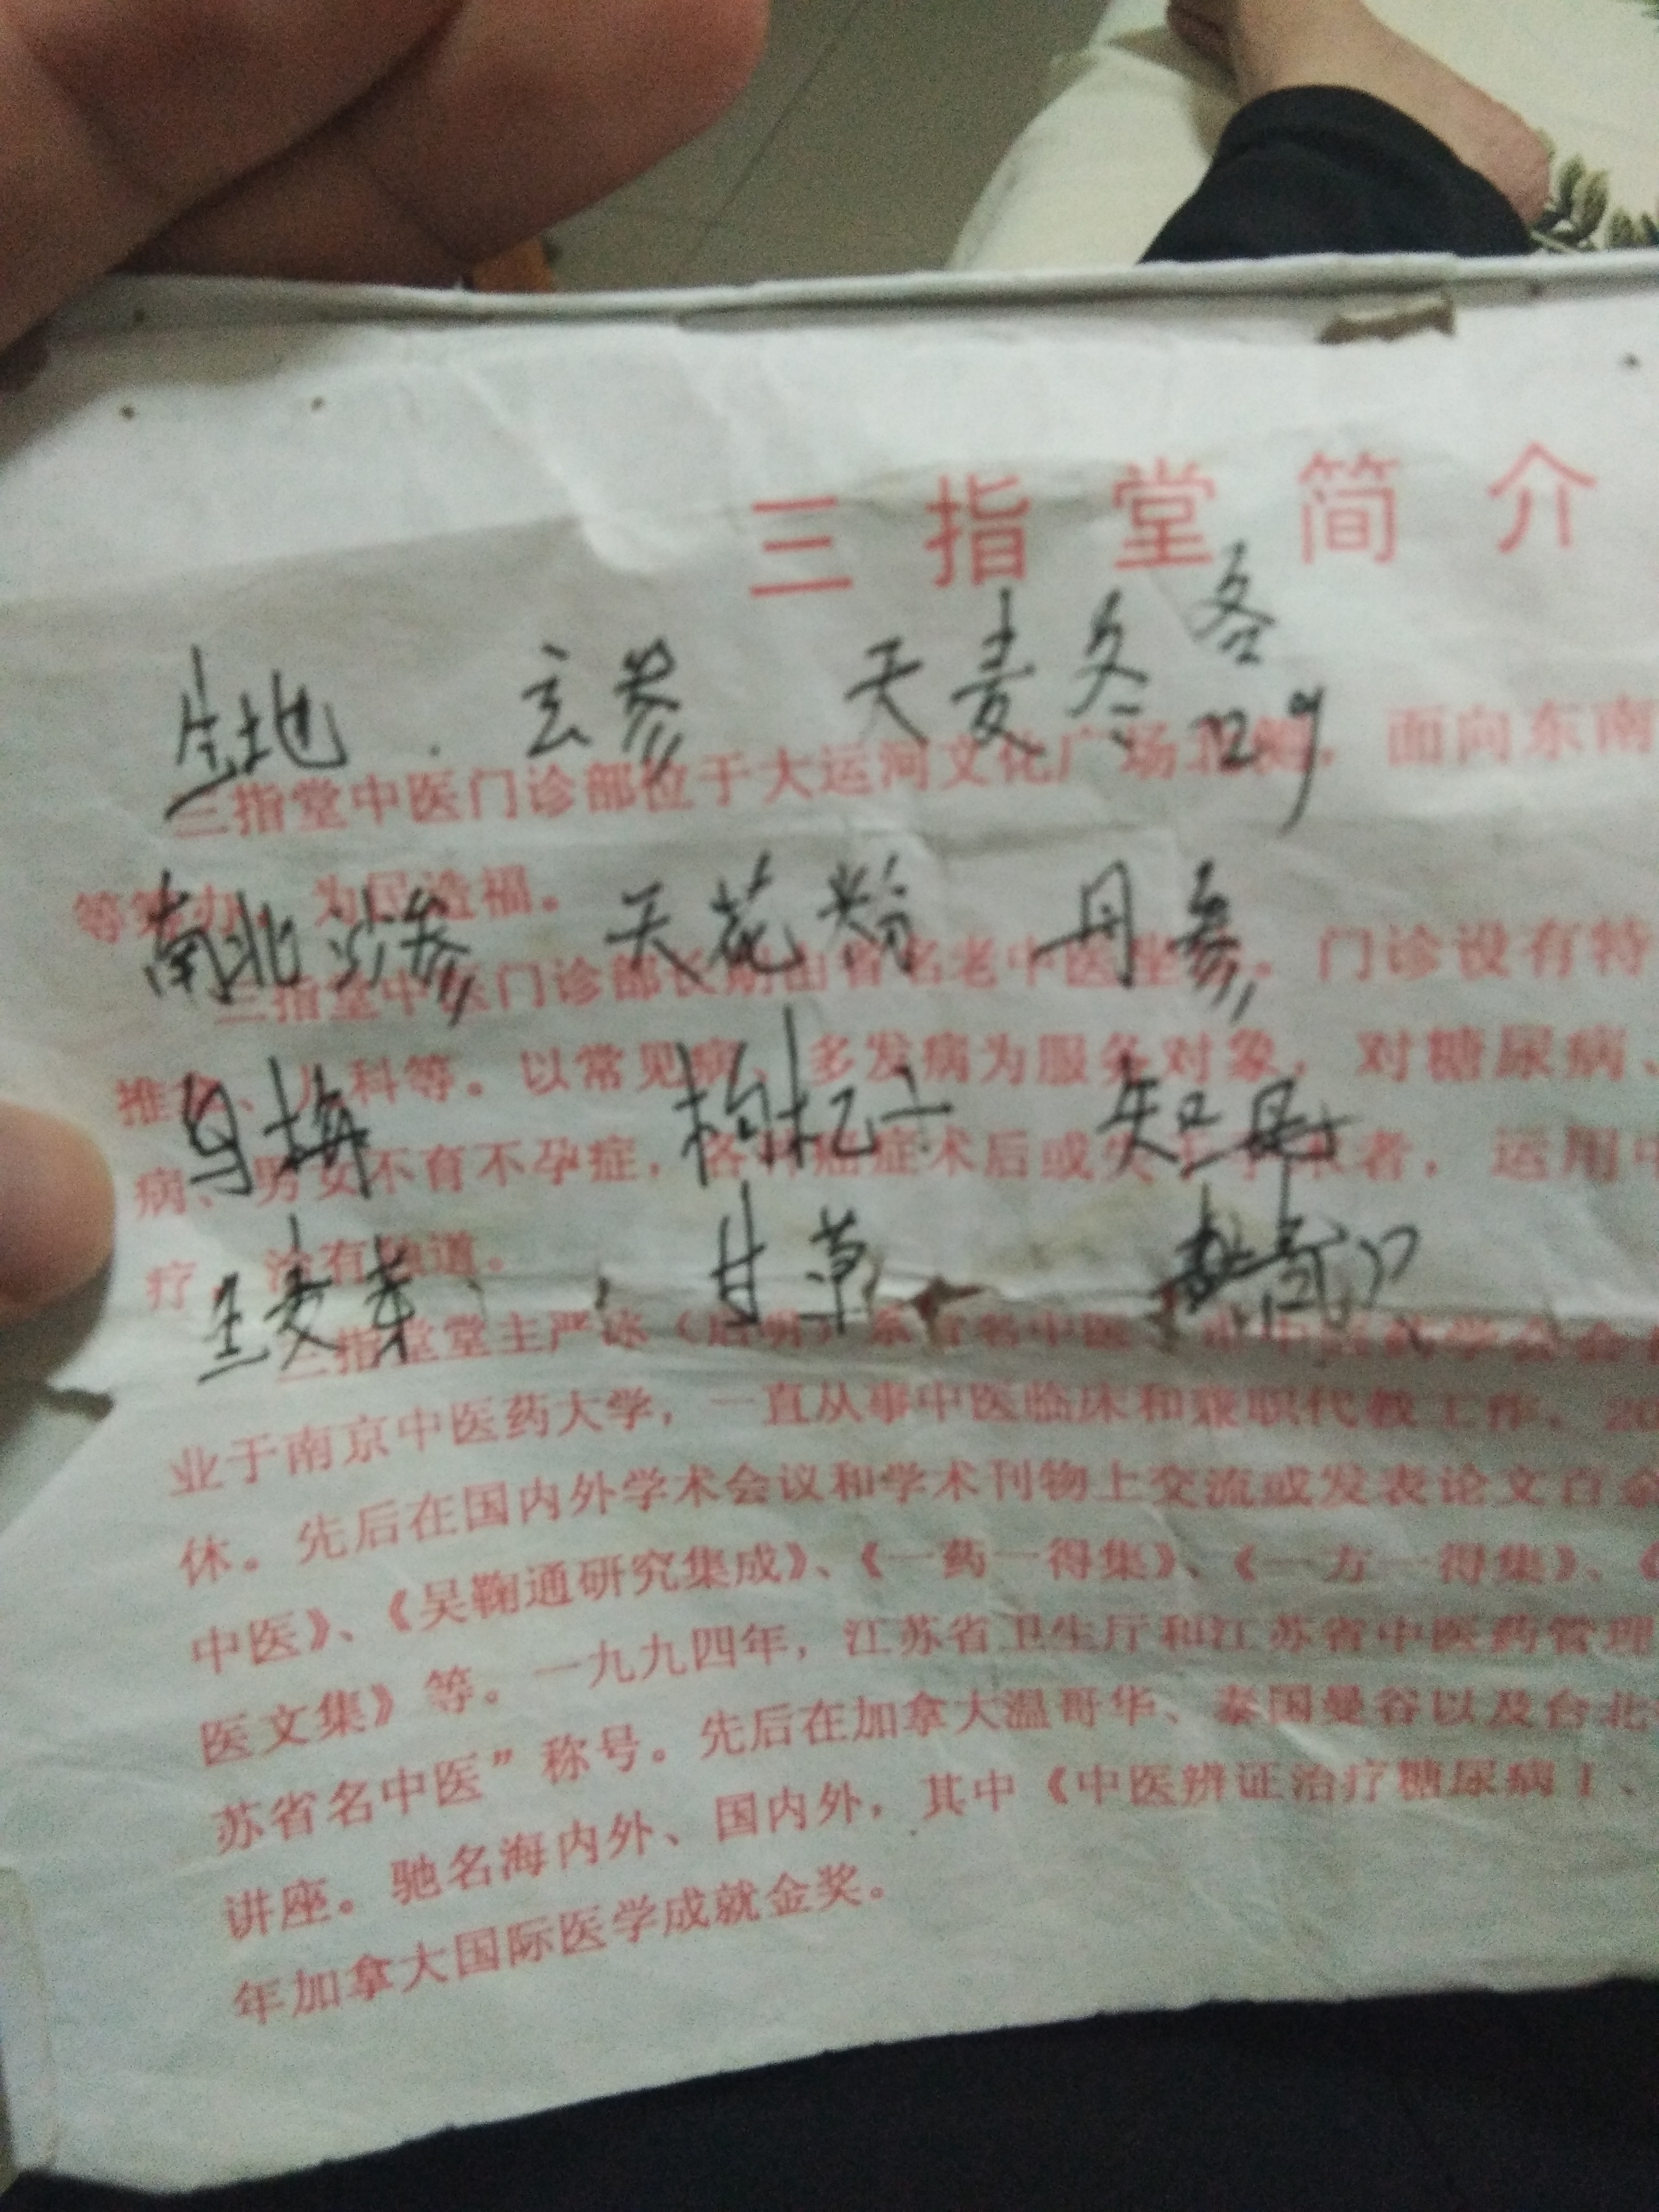 三指堂简介
生地 . 玄参 天麦冬 各12g
三指堂中医门诊部位于大运河文化广场北侧，面向东南
等筹办，为民造福。
南北沙参 天花粉 丹参
三指堂中医门诊部长期由省名老中医坐。门诊设有特
推、儿科等。以常见病、多发病为服务对象，对糖尿病、
乌梅 枸杞子 知母
病、男女不育不孕症，各种癌症术后或失去手术者，运用中
疗，治有独道。
生麦芽 甘草
三指堂堂主严冰（ 系省名中医、 学会会
业于南京中医药大学，一直从事中医临床和兼职代教工作、20
休。先后在国内外学术会议和学术刊物上交流或发表论文百余
中医》、《吴鞠通研究集成》、《一药一得集》、《一方一得集》、《
医文集》等。一九九四年，江苏省卫生厅和江苏省中医药管理
苏省名中医”称号。先后在加拿大温哥华、泰国曼谷以及台北
讲座。驰名海内外、国内外，其中《中医辨证治疗糖尿病I、
年加拿大国际医学成就金奖。